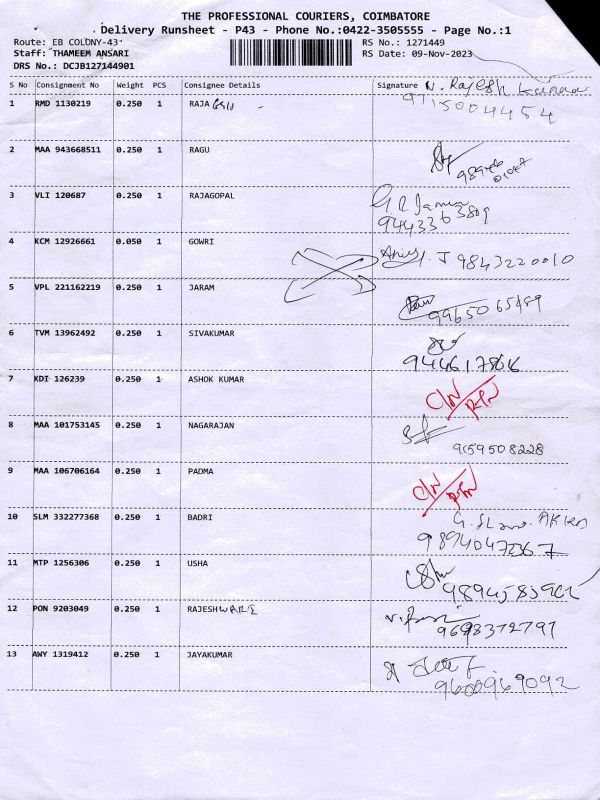 THE PROFESSIONAL COURIERS, COIMBATORE
Delivery Runsheet - P43 - Phone No.:0422-3505555 - Page No.:1
Route: EB COLONY-43 RS No.: 1271449
Staff: THAMEEM ANSARI RS Date: 09-Nov-2023
DRS No.: DCJB127144901
S No Consignment No Weight PCS Consignee Details Signature N. Rajesh Kumar
1 RMD 1130219 0.250 1 RAJA 9715004454
2 MAA 943668511 0.250 1 RAGU
3 VLI 120687 0.250 1 RAJAGOPAL
9443363809
4 KCM 12926661 0.050 1 GOWRI J 9843220010
5 VPL 221162219 0.250 1 JARAM
9965065489
6 TVM 13962492 0.250 1 SIVAKUMAR
7 KDT 126239 0.250 1 ASHOK KUMAR
8 MAA 101753145 0.250 1 NAGARAJAN
9159508228
9 MAA 106706164 0.250 1 PADMA
10 SLM 332277368 0.250 1 BADRI
11 MTP 1256306 0.250 1 USHA
12 PON 9203049 0.250 1 RAJESHWARE
9698372797
13 AWY 1319412 0.250 1 JAYAKUMAR
9600969092